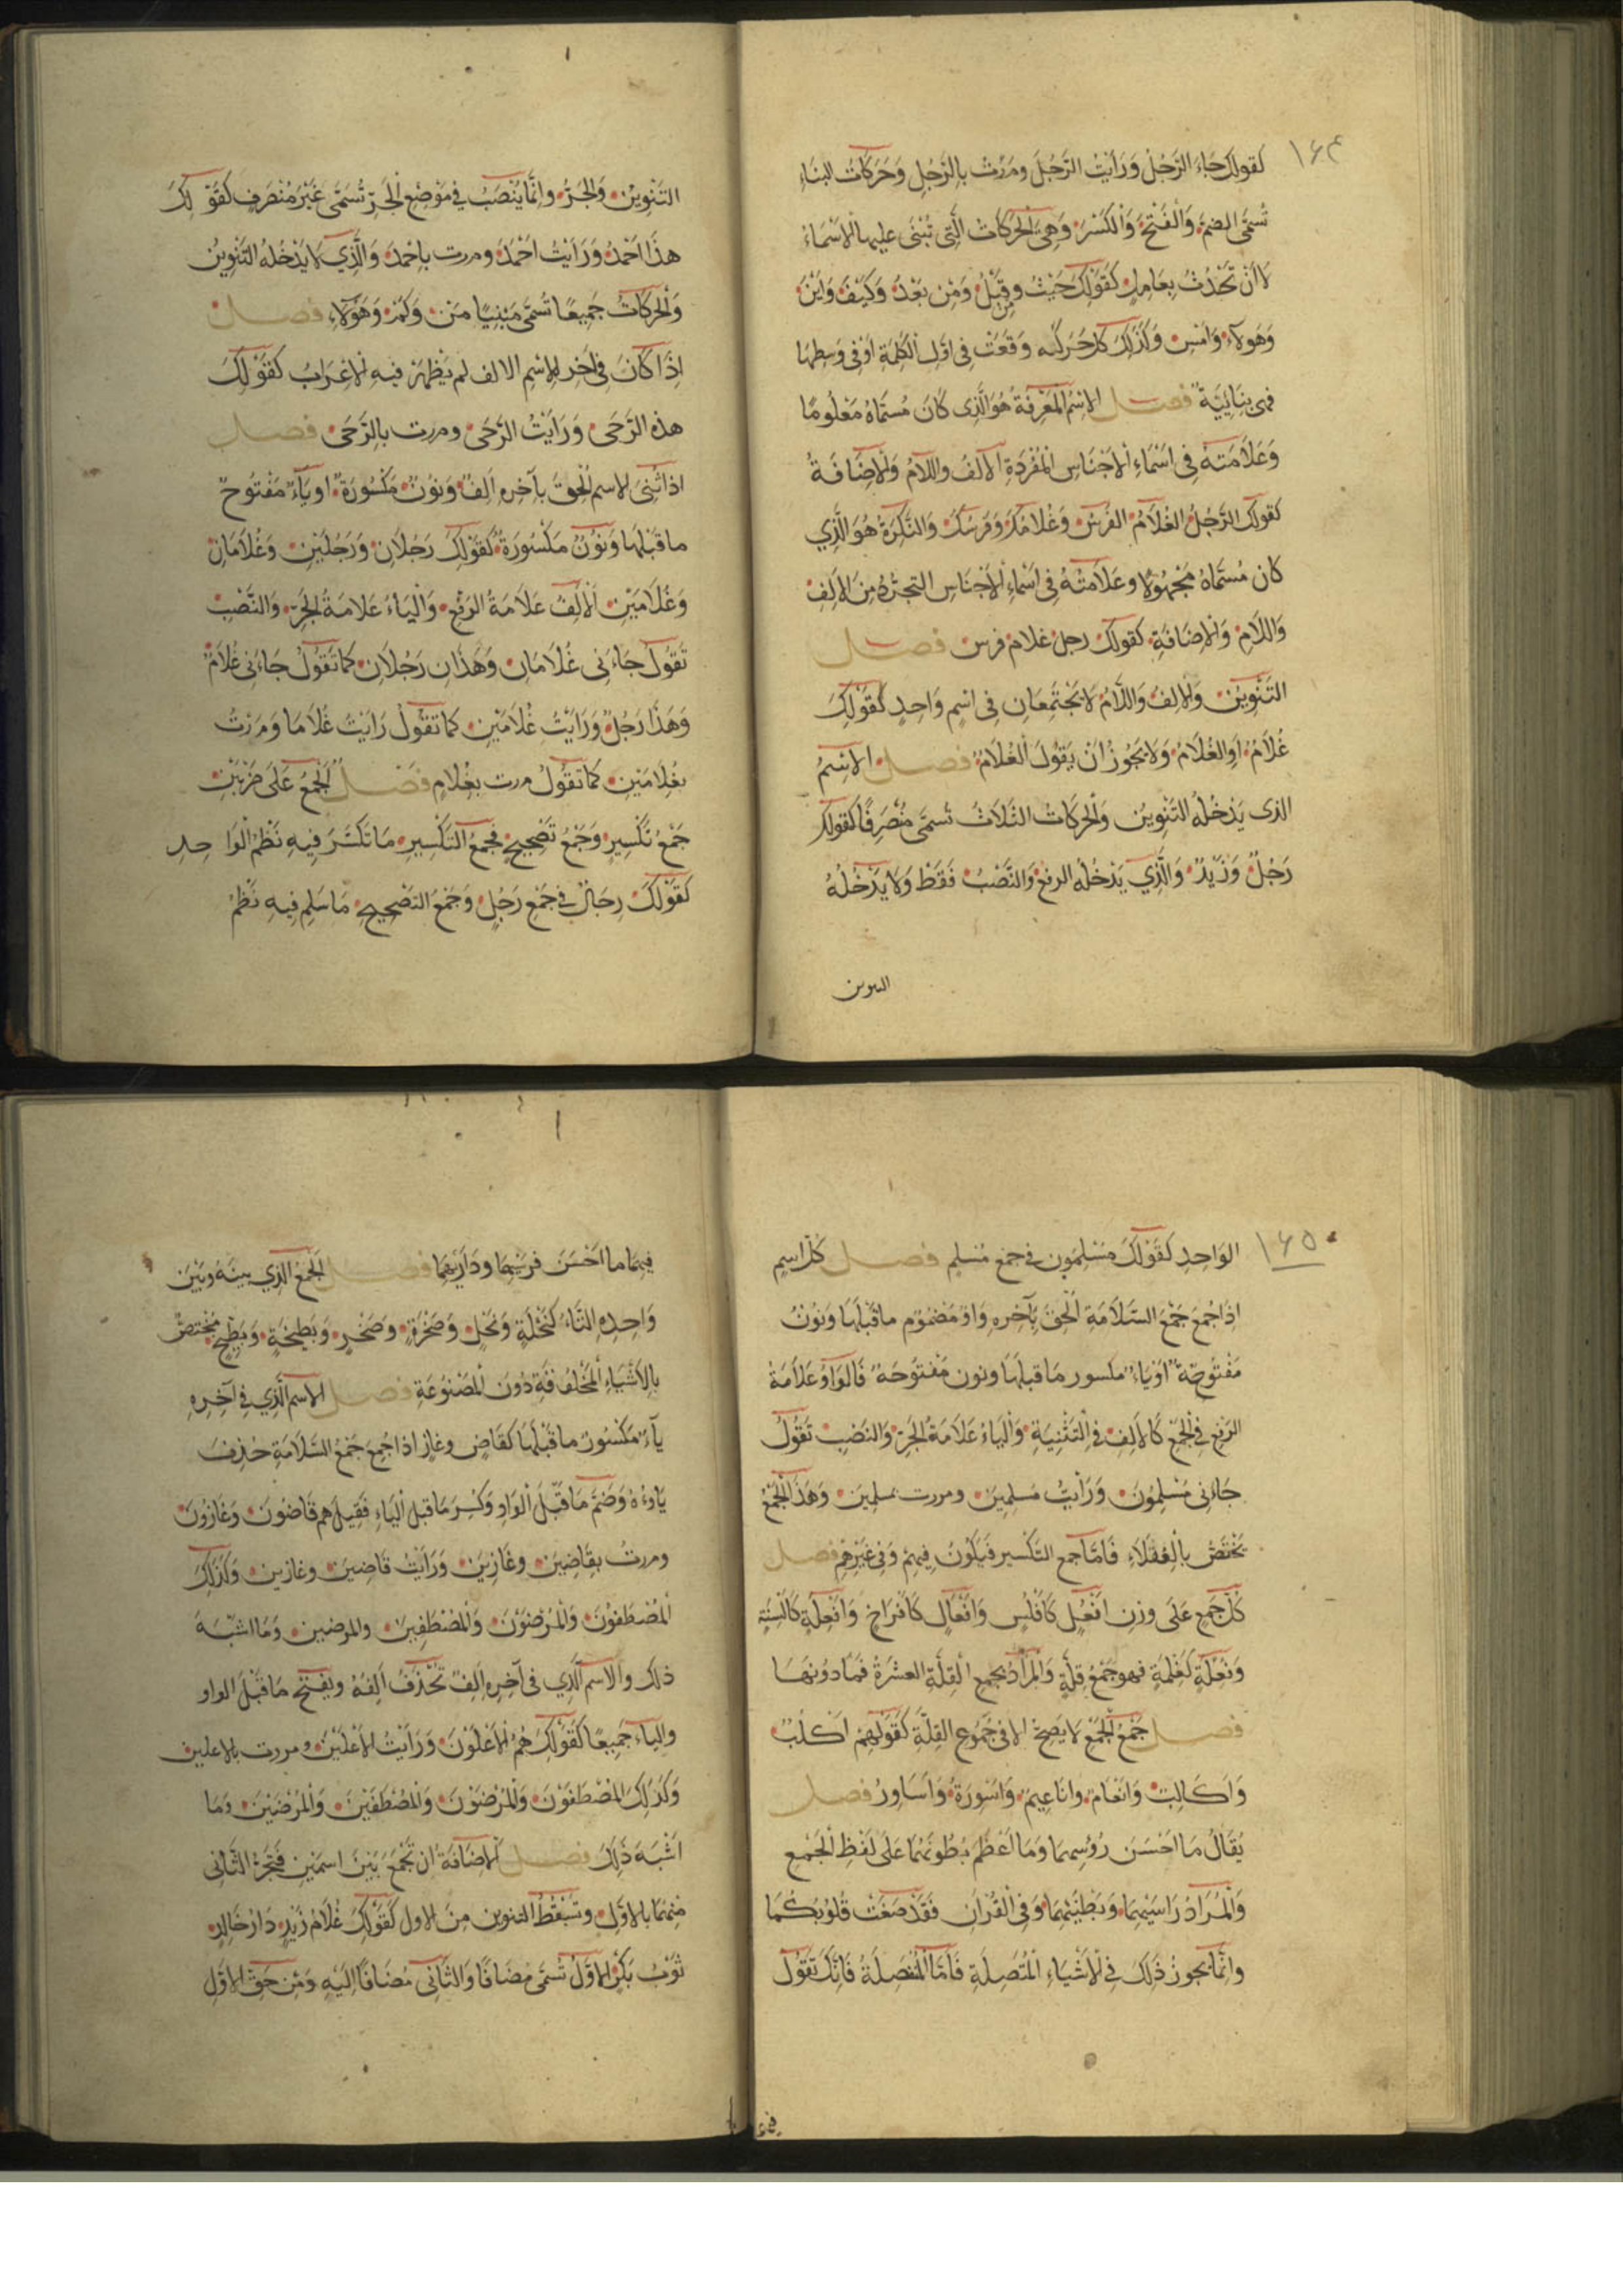 ١٦٤
كقولك جَاءَ الرَّجُلُ وَرَأَيْتُ الرَّجُلَ ومَرَرْتُ بِالرَّجُلِ وَحَرَكَاتُ البِنَاءِ
تُسَمَّى الضمَّ وَالْفَتْحَ وَالْكَسْرَ وَهِيَ الْحَرَكَاتُ الَّتِي تُبْنَى عليها الْأَسْمَاءُ
لَا أَنْ تَحْدُثُ بِعَامِلٍ كَقَوْلِكَ حَيْثُ وقَبْلُ وَمِنْ بَعْدُ وَكَيْفَ وَأَيْنَ
وَهَؤلَاءِ وَأَمْسِ وَكَذَلِكَ كل حَرَكَه وَقَعَتْ فِي أَوَّلِ الْكَلِمَةِ أَوْ فِي وَسطِهَا
فهي بِنَائِيَّةٌ فصل الاِسْمُ الْمَعْرِفَةُ هُوَ الَّذِي كَانَ مُسَمَّاهُ مَعْلُومًا
وَعَلَامَتَهُ فِي أَسْمَاءِ الْأَجْنَاسِ الْمُفْرَدَةِ الْأَلفُ واللَّامُ وَالْإِضَافَةُ
كقولك الرَّجُلُ الْغُلَامُ الفَرَسُ وَغُلَامُكَ وَفَرَسُكَ وَالنَّكِرَةُ هُوَ الَّذِي
كان مُسَمَّاهُ مَجْهُولًا وعَلَامَتُهُ فِي أَسْمَاءِ الْأَجْنَاسِ التجرُّدُ مِنَ الْأَلِفِ
وَاللَّامِ وَالْإِضَافَةِ كقولك رجل غلام فرس فصل
التَّنْوِيْنُ وَالْأَلِفُ وَاللَّامُ لَا يَجْتَمِعَانِ فِي اسْمٍ وَاحِدٍ كَقَوْلِكَ
غُلَامٌ أوِ الغُلَامُ وَلَا يَجُوزُ أَنْ يَقُولَ الْغُلَامٌ فصل الاِسْمُ
الذي يَدْخُلُهُ التَّنْوِيْنُ وَالْحَرَكَاتُ الثَّلَاثُ تُسمَّى مُنْصَرِفًا كقولك
رَجُلٌ وَزَيْدٌ وَالَّذِي يَدْخُلُهُ الرفعُ وَالنَّصْبُ فَقَطْ وَلَا يَدْخُلُهُ
التنوين
التَّنْوِيْنُ وَالْجَرُّ وإنَّمَا يُنْصَبُ فِي مَوْضِعِ الْجَرِّ تُسَمَّى غَيْرَ مُنْصَرِفٍ كَقَوْلِكَ
هذَا أَحْمَدُ وَرَأَيْتُ أَحْمَدَ ومررت بِأَحْمَدَ وَالَّذِي لَا يَدْخُلُهُ التَّنْوِيْنُ
وَالْحَرَكَاتُ جَمِيعًا تُسَمَّى مَبْنِيًا مَنْ وَكَمْ وَهَؤُلَاءِ فصل
إِذَا كَانَ فِي آخِرِ الاسْمِ الالف لم يَظْهَرْ فيهِ الْإِعْرَابُ كَقَوْلِكَ
هذه الرَّحَى وَرَأَيْتُ الرَّحَى ومررت بِالرَّحَى فصل
اذا ثُنِّيَ الاسم أُلْحِقَ بِآخِرِهِ أَلِفٌ وَنُونٌ مَكْسُورَةٌ او يَاءٌ مَفْتُوحٌ
ما قَبْلَهَا وَنُونٌ مَكْسُورَةٌ كَقَوْلِكَ رَجُلَانِ وَرَجُلَيْنِ وَغُلَامَانِ
وَغُلَامَيْنِ الْأَلِفُ عَلَامَةُ الرَفْعِ وَالْيَاءُ عَلَامَةُ الْجَرِّ وَالنَّصْبِ
تَقُولُ جَاءَنِي غُلَامَانِ وَهَذَانِ رَجُلَانِ كَمَا تَقُولُ جَاءَنِي غُلَامٌ
وَهَذَا رَجُلٌ وَرَأَيْتُ غُلَامَيْنِ كَمَا تَقُولُ رَأَيْتُ غُلَامًا وَمَرَرْتُ
بغُلَامَيْنِ كَمَا تَقُولُ مررت بِغُلَامٍ فَصْلٌ الْجَمْعُ عَلَى ضَرْبَيْنِ
جَمْعُ تَكْسِيرٍ وَجَمْعُ تَصْحِيحٍ فجمع التَّكْسِيرِ مَا تَكَسَّرَ فِيهِ نَظْمُ الْوَاحِدِ
كَقَوْلِكَ رِجَالٌ فِي جَمْعِ رَجُلٍ وَجَمْعُ التَصْحِيحِ مَا سَلِم فِيهِ نَظْمُ
١٦٥
الوَاحِدِ كَقَوْلِكَ مُسْلِمُونَ في جمع مُسْلِمٍ فصل كُلُّ اسْمٍ
اِذَا جُمِعَ جَمْعَ السَّلَامَةِ أُلْحِقَ بِآخِرِهِ وَاوٌ مَضْمُوْمٌ ما قَبْلَهَا وَنُوْنٌ
مَفْتُوحَةٌ أَوْ يَاءٌ مكسور مَا قبلها ونون مَفْتُوحَةٌ فَالوَاوُ عَلَامَةُ
الرَفْعِ فِي الْجَمْعِ كَالْأَلِفِ فِي التَّثْنِيَةِ وَالْيَاءُ عَلَامَةُ الْجَرِّ وَالنَصْبِ تَقُولُ
جَاءَنِي مُسْلِمُوْنَ وَرَأَيْتُ مُسلِمِيْنَ ومررت بمسلِمِينَ وَهَذَا الْجَمْعُ
يَخْتَصُّ بِالْعُقَلَاءِ فَأَمَّا جمع التَّكْسِيرِ فَيَكُونُ فِيهِمْ وَفِي غَيْرِهِمْ فصل
كُلُّ جَمْعٍ عَلَى وزنِ أَفْعُلٍ كَأَفْلُسٍ وَأَفْعَالٍ كَأَفْرَاخٍ وَأَفْعِلَةٍ كَأَلْسِنَةٍ
وَفِعْلَةٍ كَغِلْمَةٍ فهو جَمْعُ قِلَّةٍ وَالْمُرَادُ بجمع الْقِلَّةِ العشرَةُ فَمَا دُونَهَا
فصل جَمْعُ الْجَمْعِ لَا يَصِحُّ الا في جُمُوعِ القِلَّةِ كَقَوْلِهِمْ أَكْلُبٌ
وَأَكَالِبُ وَأَنْعَامٌ وأنَاعِيمُ وَأَسْوِرَةٌ وَأَسَاوِرُ فصل
يُقَالُ مَا أَحْسَنَ رُؤُسِهِمَا وَمَا أَعْظَمَ بُطُونَهُمَا عَلَى لَفْظِ الْجَمْعِ
وَالْمُرَادُ رَأسَيْهِمَا وَبَطْنَيْهِمَا وَفِي الْقُرْآنِ فَقَدْ صَغَتْ قُلُوبُكُمَا
وانَّمَا يجوزُ ذَلِكَ فِي الْأَشْيَاءِ الْمُتَّصِلَةِ فَأَمَّا الْمُنْفَصِلَةُ فَإِنَّكَ تَقُولُ
فِيهِمَا مَا أَحْسَنَ فَرَسَيْهِمَا وَدَارَيْهِمَا فصل الْجَمْعُ الَّذِي بَيْنَهُ وَبَيْنَ
وَاحِدِهِ التَّاءُ كَنَخْلَةٍ وَنَخْلٍ وَصَخْرَةٍ وَصَخْرٍ وَبَطِيخَةٍ وَبَطِّيْخٍ مُخْتَصٌّ
بِالْأَشْيَاءِ الْمَخْلُوْقَةِ دُوْنَ الْمَصْنُوعَةِ فصل الاسم الَّذِي فِي آخِرِهِ
يَاءٌ مَكْسُورٌ ما قَبْلَهَا كَقَاضٍ وغازٍ اذا جُمِعَ جَمْعَ السَّلَامَةِ حُذِفَ
يَاؤُهُ وَضُمَّ مَا قَبْلَ الْوَاوِ وَكُسِرَ مَا قبل الْيَاءِ فَقِيلَ هم قَاضُونَ وَغَازُونَ
ومررتُ بِقَاضِيْنَ وَغَازِيْنَ وَرَأَيْتُ قَاضِيْنَ وغازين وَكَذَلِكَ
الْمُصْطَفَوْنَ وَالْمُرْضَوْنَ وَالْمُصْطَفِيْنَ والمرضين وَمَا اشْبَهَ
ذلك والاسم الَّذِي في آخِرِهِ أَلِفٌ تُحْذَفُ أَلِفُهُ ويُفْتَحُ مَا قَبْلَ الواو
والياء جَمِيعًا كَقَوْلِكَ هُمُ الْأَعْلَوْنَ وَرَأَيْتُ الْأَعْلَيْنَ ومررت بالاعلين
وَكَذَلِكَ الْمُصْطَفَوْنَ وَالْمُرْضَوْنَ وَالْمُصْطَفَيْنَ وَالْمُرْضَيْنَ وَمَا
أَشْبَهَ ذَلِكَ فصل الْإِضَافَةُ ان تَجْمَعَ بَيْنَ اسمَيْنِ فَتَجُرَّ الثَّانِي
مِنْهُمَا بِالْأَوَّلِ وتُسْقِطُ التنوين مِنَ الاول كَقَوْلِكَ غُلَامُ زَيْدٍ دَارُ خَالِدٍ
ثَوْبُ بَكْرٍ الاوَّلُ تُسَمَّى مُضَافًا وَالثَّانِي مُضَافًا إِلَيْهِ وَمِنْ حَقِّ الاوَّلِ